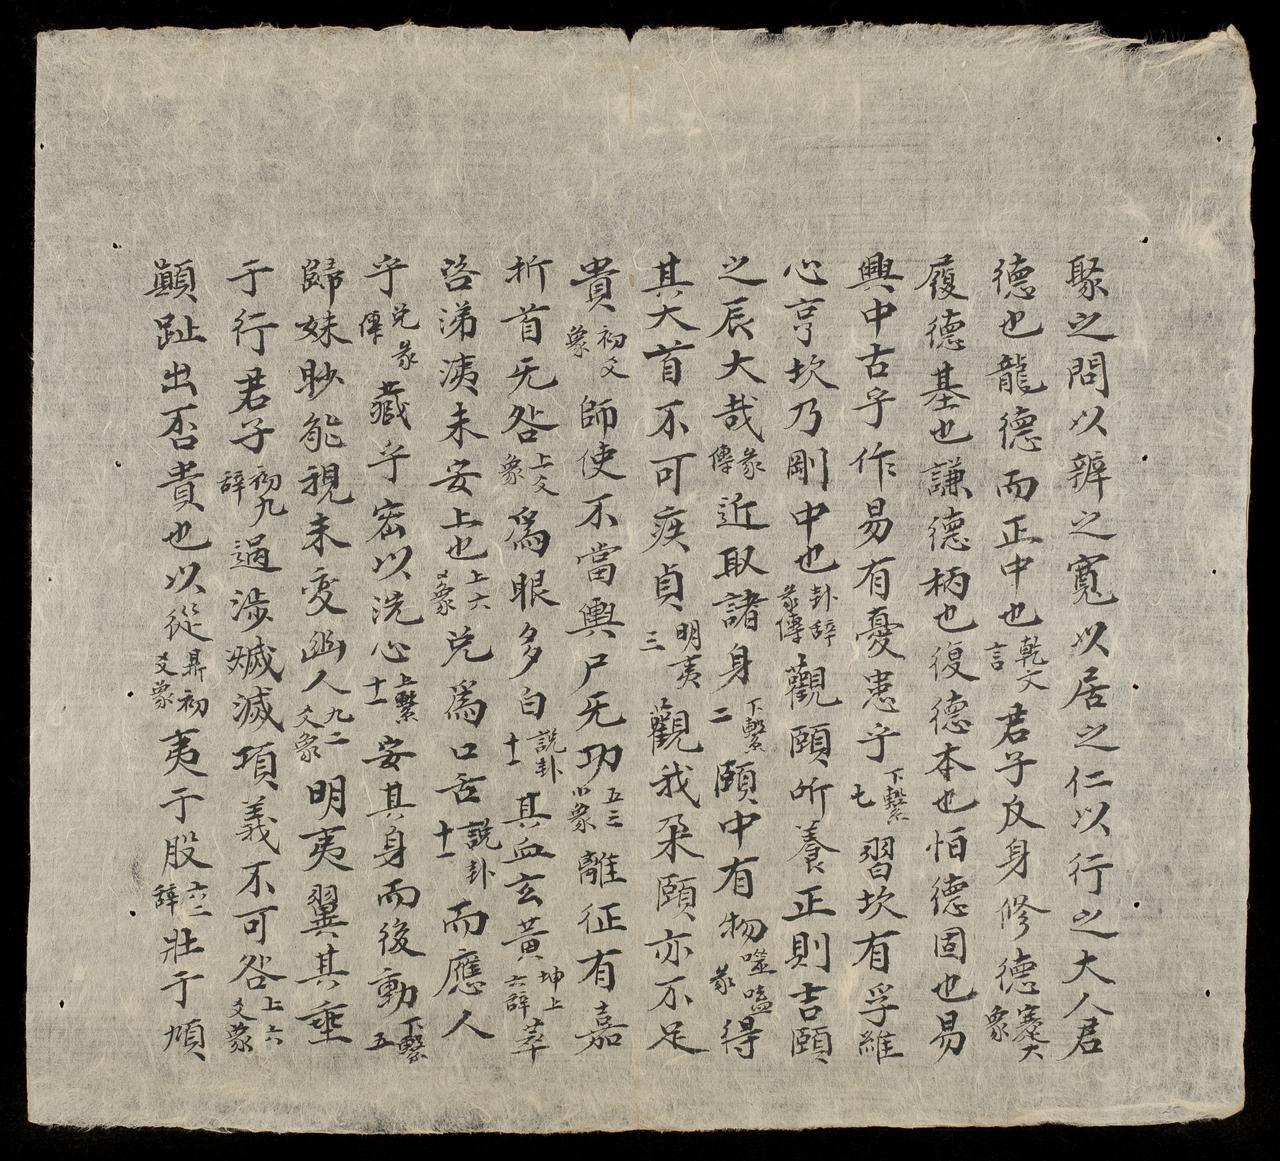 聚之問以辨之寬以居之仁以行之大人君
德也龍德而正中也乾文言君子反身修德蹇大象
履德基也謙德柄也復德本也恒德固也易
興中古乎作易有憂患乎下繫七習坎有孚維
心亨坎乃剛中也卦辭彖傳觀頤所養正則吉頤
之辰大哉彖傳近取諸身下繫二頤中有物噬嗑彖得
其大首不可疾貞明夷三觀我朵頤亦不足
貴初爻象師使不當輿尸无功五三小象離征有嘉
折首无咎上爻象爲眼多白說卦十一其血玄黃坤上六辭萃
咨涕洟未安上也上六爻象兌爲口舌說卦十一而應人
乎兌彖傳藏乎密以洗心上繫十一安其身而後動下繫五
歸妹眇能視未变幽人九二爻象明夷翼其垂
于行君子初九辭過涉滅項義不可咎上六爻象
顚趾出否貴也以從鼎初爻象夷于股六二辭壯于頄